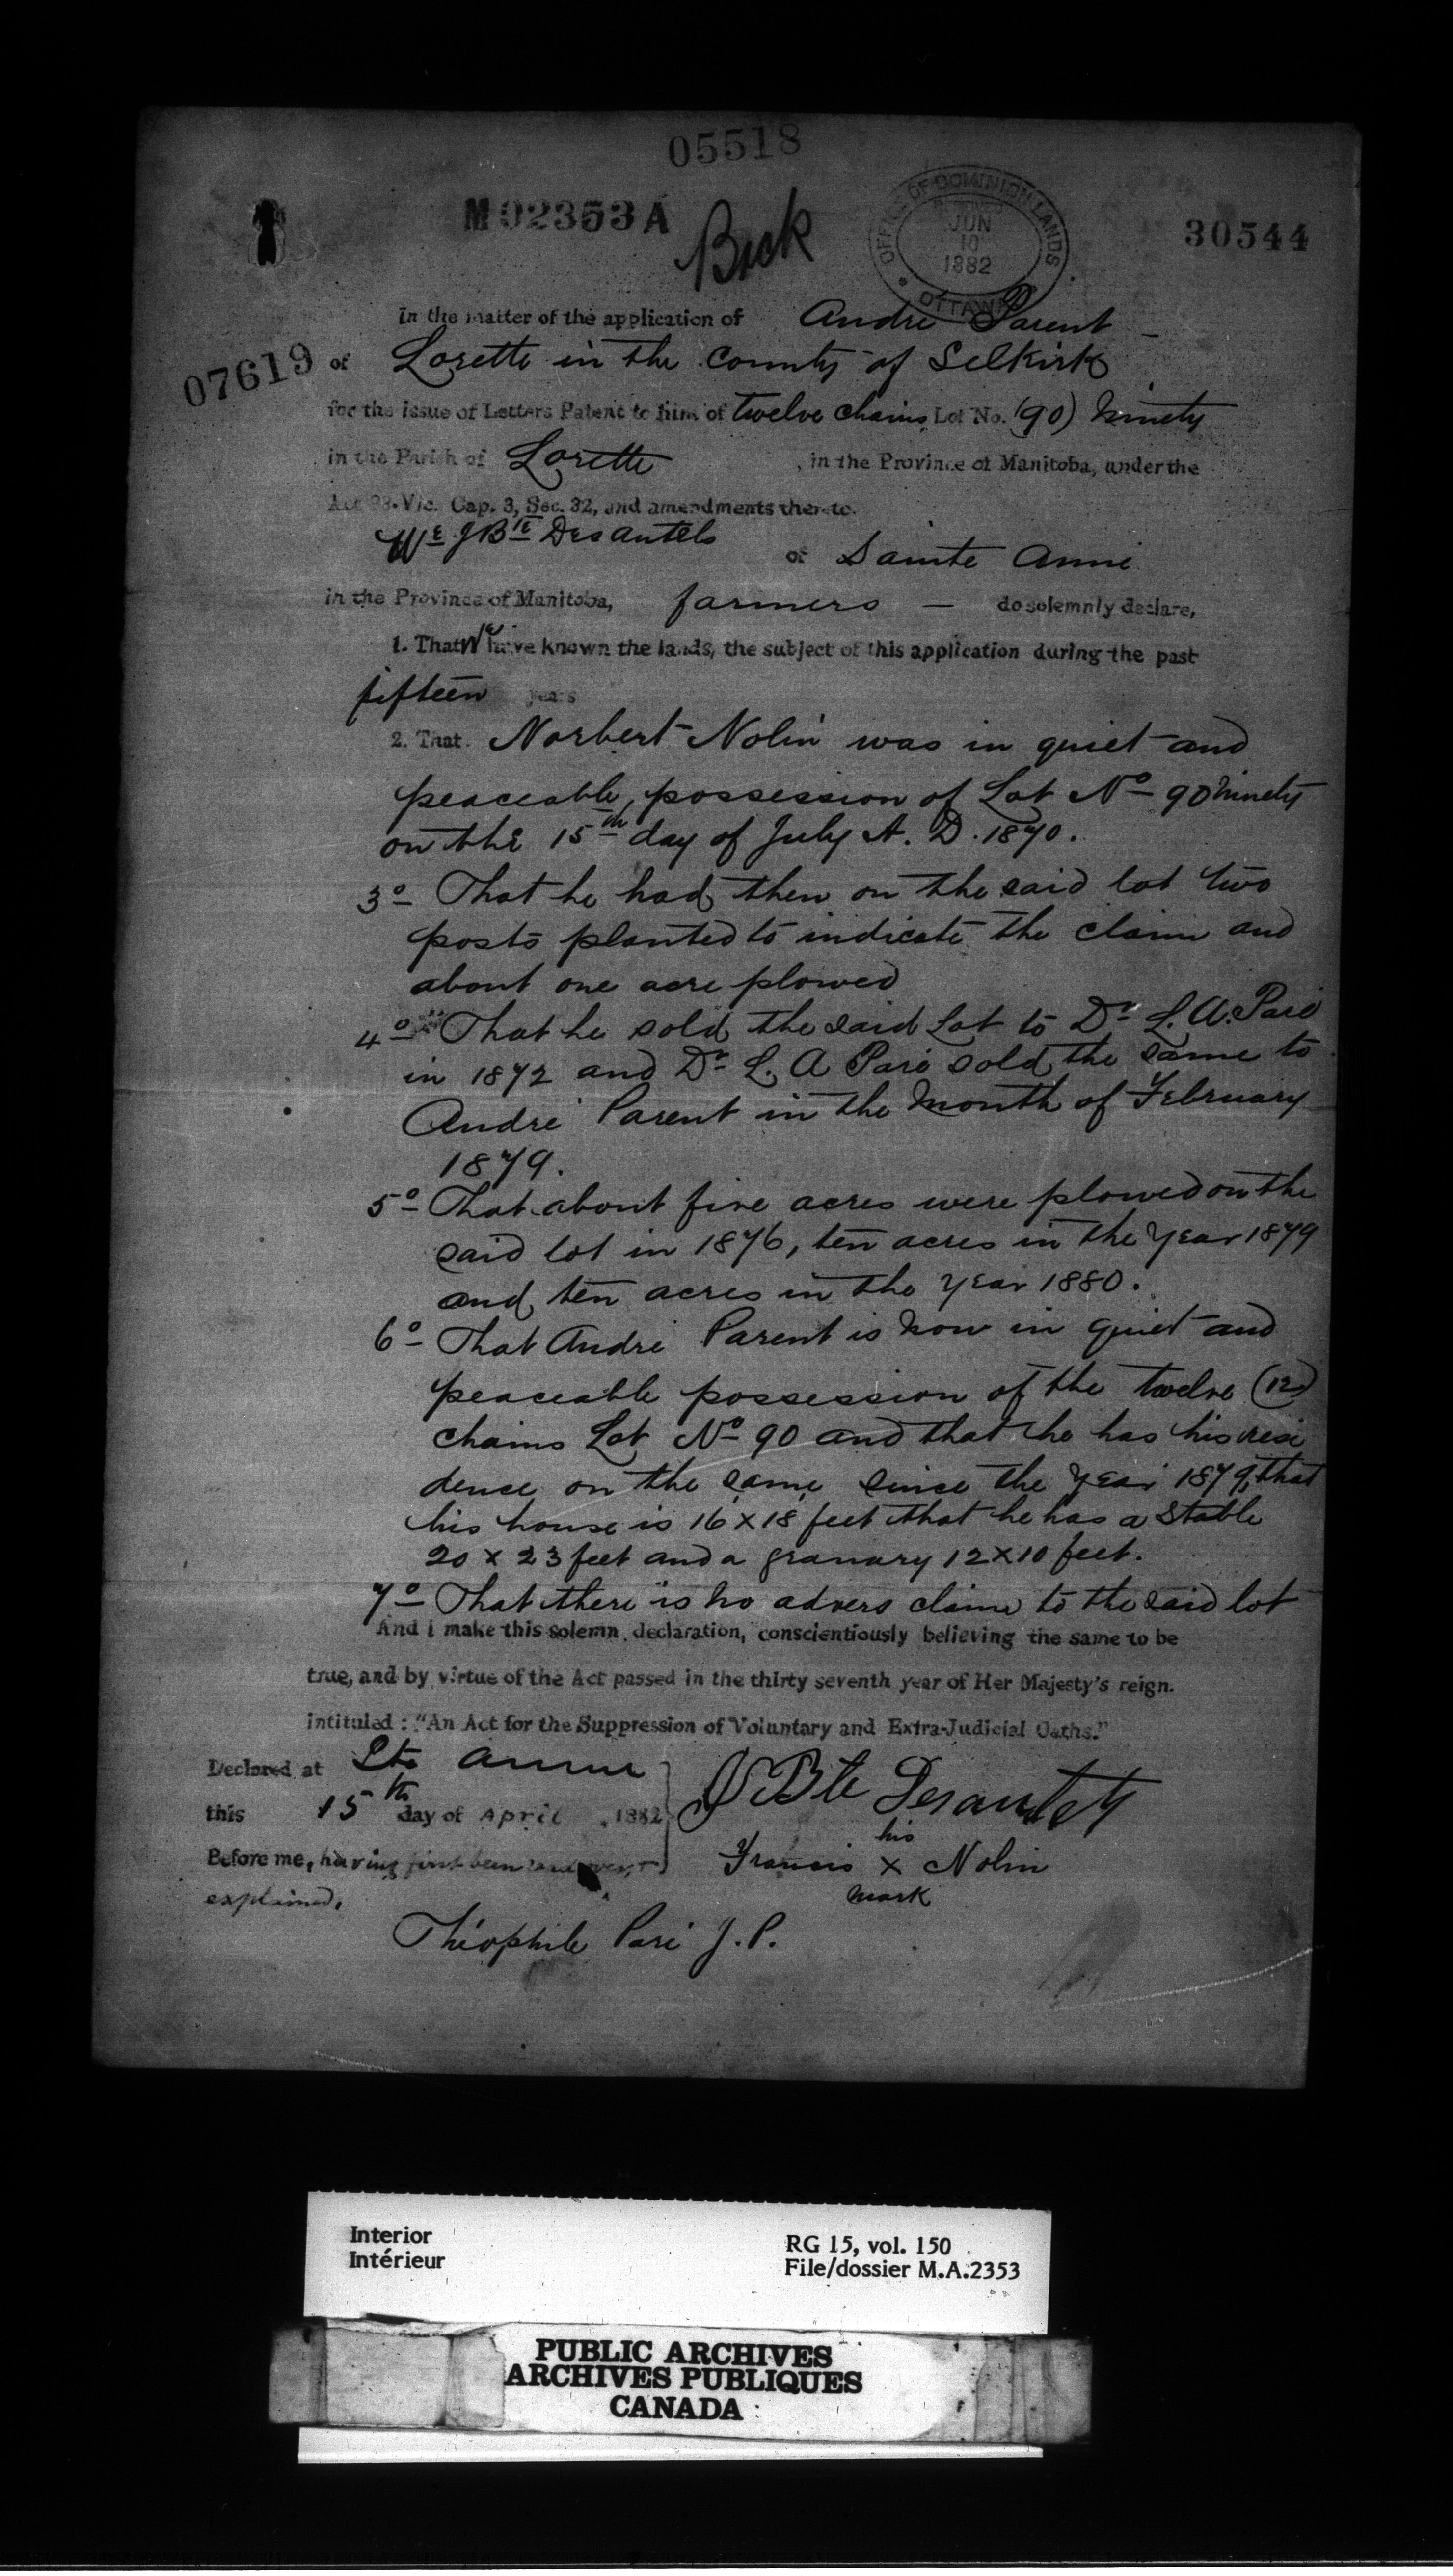 05518
M 02353 A
Beck
OFFICE OF DOMINION LANDS
JUN
10
1882
OTTAWA
30544
In the matter of the application of Andre Parent
07619 of Lorette in the County of Selkirk
for the issue of Letters Patent to him of twelve chains Lot No. (90) Ninety
in the Parish of Lorette , in the Province of Manitoba, under the
Act 38 Vic. Cap. 3, Sec. 32, and amendments thereto.
We J Bte Desautels of Sainte Anne
in the Province of Manitoba, farmers — do solemnly declare,
1. That We have known the lands, the subject of this application during the past
fifteen years
2. That Norbert Nolin was in quiet and
peaceable possession of Lot No 90 Ninety
on the 15th day of July A. D. 1870.
3o That he had then on the said lot two
posts planted to indicate the claim and
about one acre plowed
4o That he sold the said Lot to Dr L. A. Paré
in 1872 and Dr L. A Paré sold the same to
André Parent in the Month of February
1879.
5o That about five acres were plowed on the
said lot in 1876, ten acres in the Year 1879
and ten acres in the Year 1880.
6o That André Parent is Now in quiet and
peaceable possession of the twelve (12)
chains Lot No 90 and that he has his resi
dence on the same since the Year 1879, that
his house is 16 x 18 feet that he has a Stable
20 x 23 feet and a granary 12 x 10 feet.
7o That there is No advers claim to the said lot
And I make this solemn declaration, conscientiously believing the same to be
true, and by virtue of the Act passed in the thirty seventh year of Her Majesty's reign.
intituled: "An Act for the Suppression of Voluntary and Extra-Judicial Oaths."
Declared at Ste Anne
this 15th day of April , 1882
J Bte Desautels
Before me, having first been read over +
explained,
his
Francis x Nolin
Mark
Théophile Paré J. P.
Interior
Intérieur
RG 15, vol. 150
File/dossier M.A.2353
PUBLIC ARCHIVES
ARCHIVES PUBLIQUES
CANADA